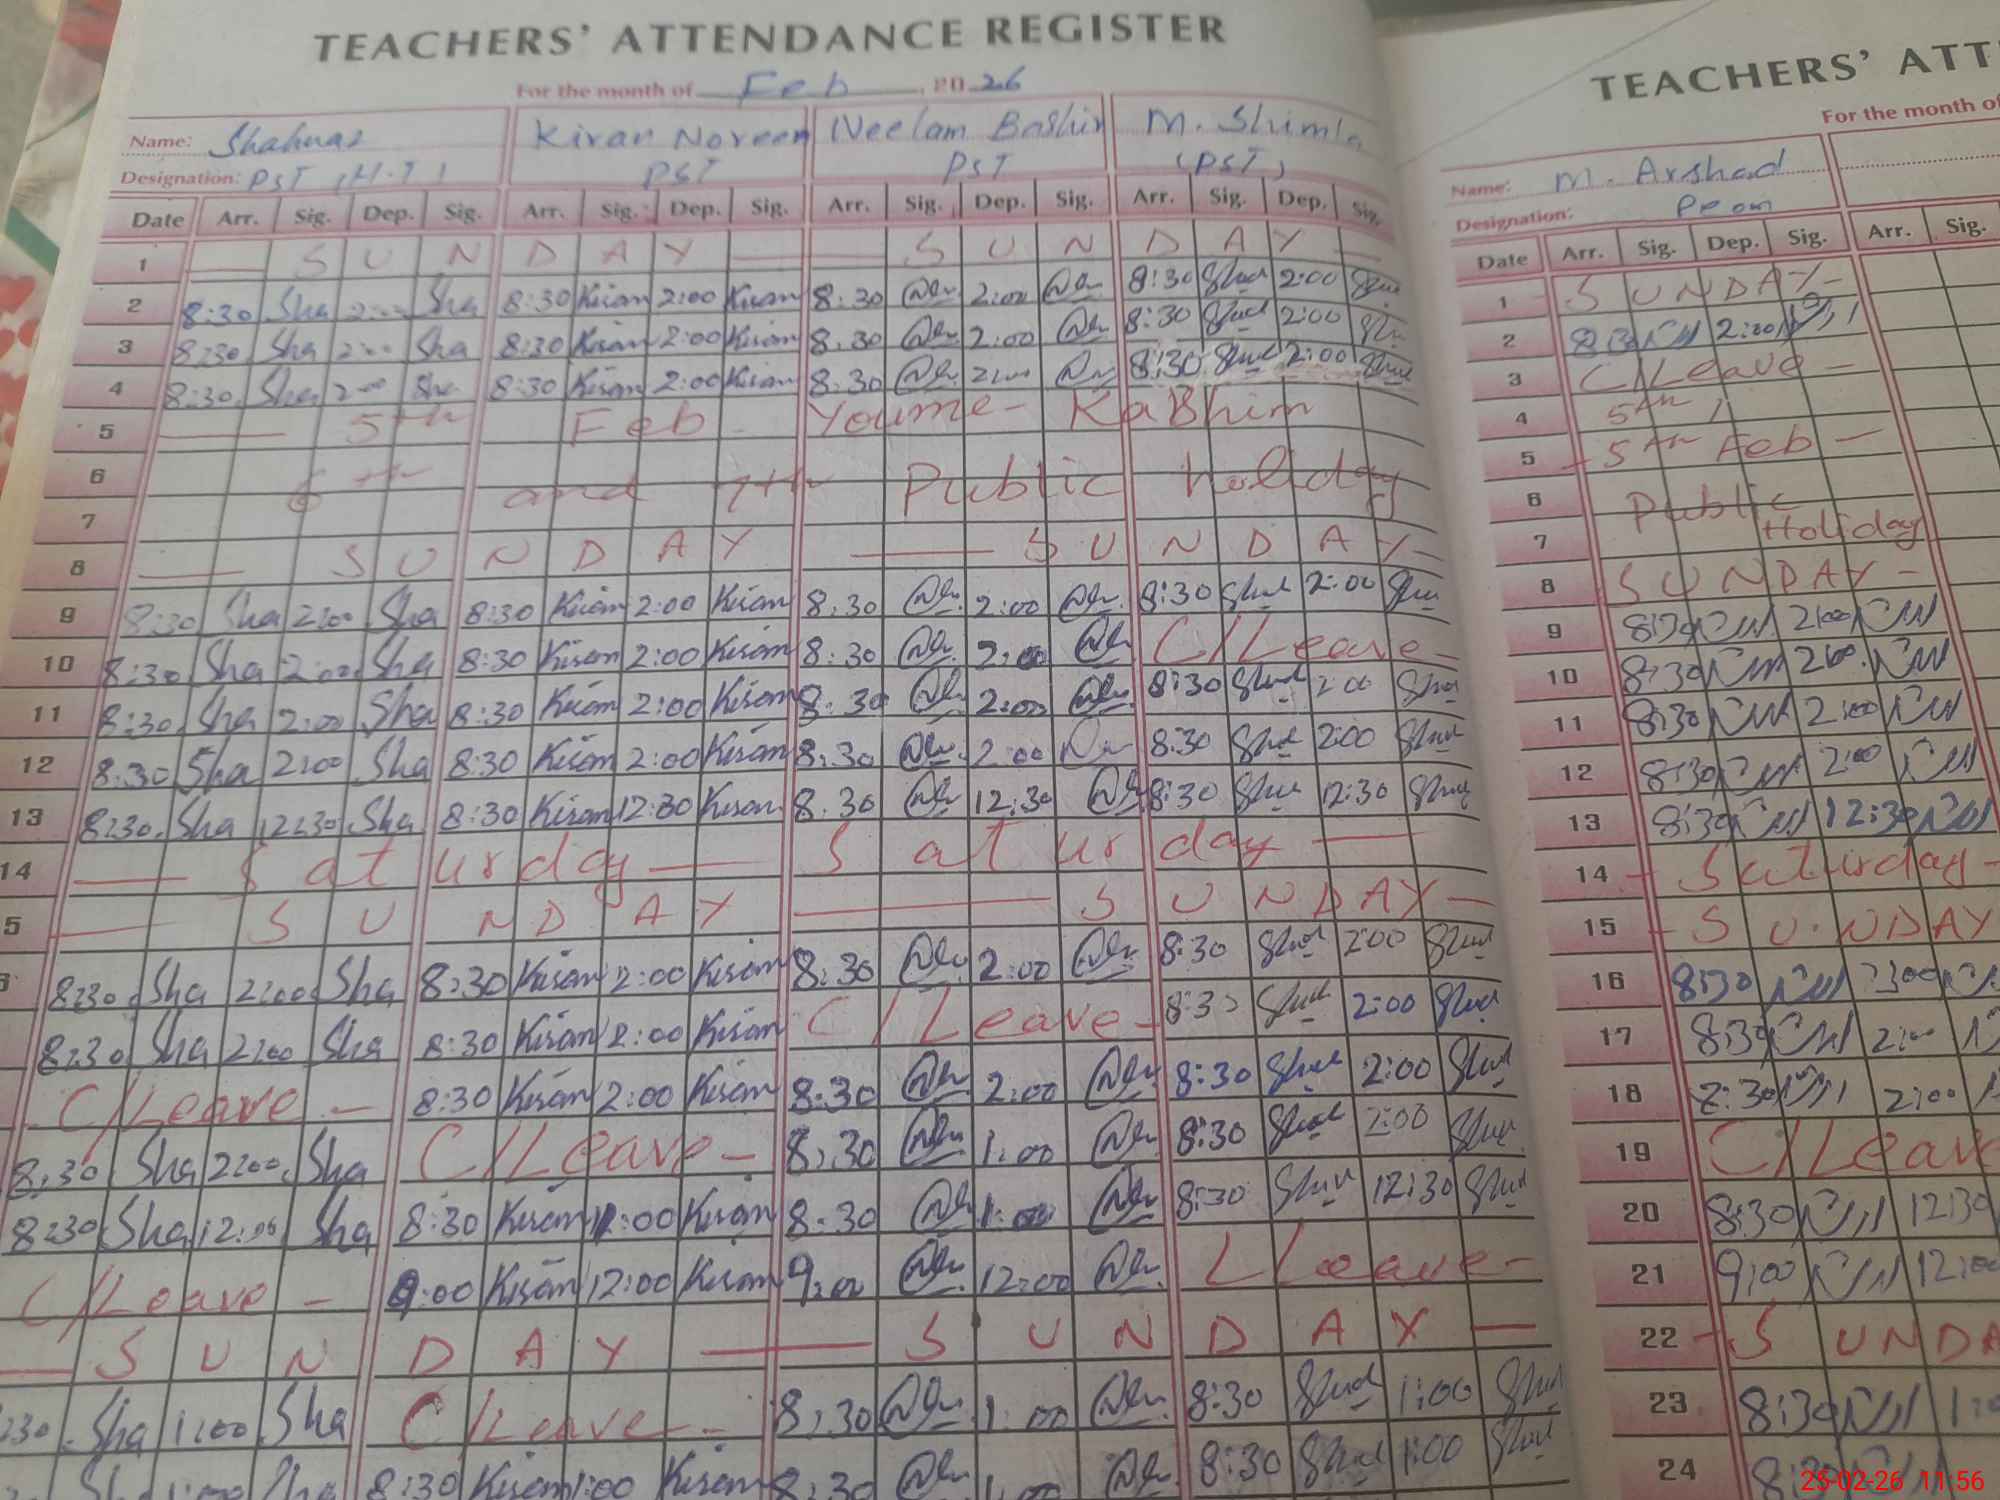 TEACHERS' ATTENDANCE REGISTER
For the month of Feb, 2026
Name: Shahnaz Kiran Noreen Neelam Bashir M. Shimla
Designation: PST (H.T) PST PST (PST)
Date Arr. Sig. Dep. Sig. Arr. Sig. Dep. Sig. Arr. Sig. Dep. Sig. Arr. Sig. Dep. Sig.
1 — SUNDAY — — SUNDAY —
2 8:30 Sha 2:00 Sha 8:30 Kiran 2:00 Kiran 8:30 2:00 8:30 2:00
3 8:30 Sha 2:00 Sha 8:30 Kiran 2:00 Kiran 8:30 2:00 8:30 2:00
4 8:30 Sha 2:00 Sha 8:30 Kiran 2:00 Kiran 8:30 2:00 8:30 2:00
5 — 5th Feb Youme- KaBhim
6 6th and 7th Public Holiday
7
8 — SUNDAY — SUNDAY —
9 8:30 Sha 2:00 Sha 8:30 Kiran 2:00 Kiran 8:30 2:00 8:30 2:00
10 8:30 Sha 2:00 Sha 8:30 Kiran 2:00 Kiran 8:30 2:00 C/Leave —
11 8:30 Sha 2:00 Sha 8:30 Kiran 2:00 Kiran 8:30 2:00 8:30 2:00
12 8:30 Sha 2:00 Sha 8:30 Kiran 2:00 Kiran 8:30 2:00 8:30 2:00
13 8:30 Sha 12:30 Sha 8:30 Kiran 12:30 Kiran 8:30 12:30 8:30 12:30
14 — Saturday — Saturday —
5 — SUNDAY — SUNDAY —
8:30 Sha 2:00 Sha 8:30 Kiran 2:00 Kiran 8:30 2:00 8:30 2:00
8:30 Sha 2:00 Sha 8:30 Kiran 2:00 Kiran C/Leave — 8:30 2:00
C/Leave — 8:30 Kiran 2:00 Kiran 8:30 2:00 8:30 2:00
8:30 Sha 2:00 Sha C/Leave — 8:30 1:00 8:30 2:00
8:30 Sha 12:00 Sha 8:30 Kiran :00 Kiran 8:30 1:00 8:30 12:30
C/Leave — 9:00 Kiran 12:00 Kiran 9:00 12:00 L Leave —
— SUNDAY — SUNDAY —
:30 Sha 1:00 Sha C/Leave — 8:30 1:00 8:30 1:00
Sha 1:00 Sha 8:30 Kiran 1:00 Kiran 8:30 1:00 8:30 1:00
TEACHERS' ATT
For the month of
Name: M. Arshad
Designation:
Date Arr. Sig. Dep. Sig. Arr. Sig.
1 SUNDAY —
2 8:30 2:00
3 C/Leave —
4 5th
5 — 5th Feb —
6 Public
7 Holiday
8 SUNDAY —
9 8:30 2:00
10 8:30 2:00
11 8:30 2:00
12 8:30 2:00
13 8:30 12:30
14 — Saturday —
15 — SUNDAY
16 8:30 2:00
17 8:30 2:00
18 8:30 2:00
19 C/Leave
20 8:30 12:30
21 9:00 12:00
22 — SUNDA
23 8:30 1:
24 8:30
25-02-26 11:56